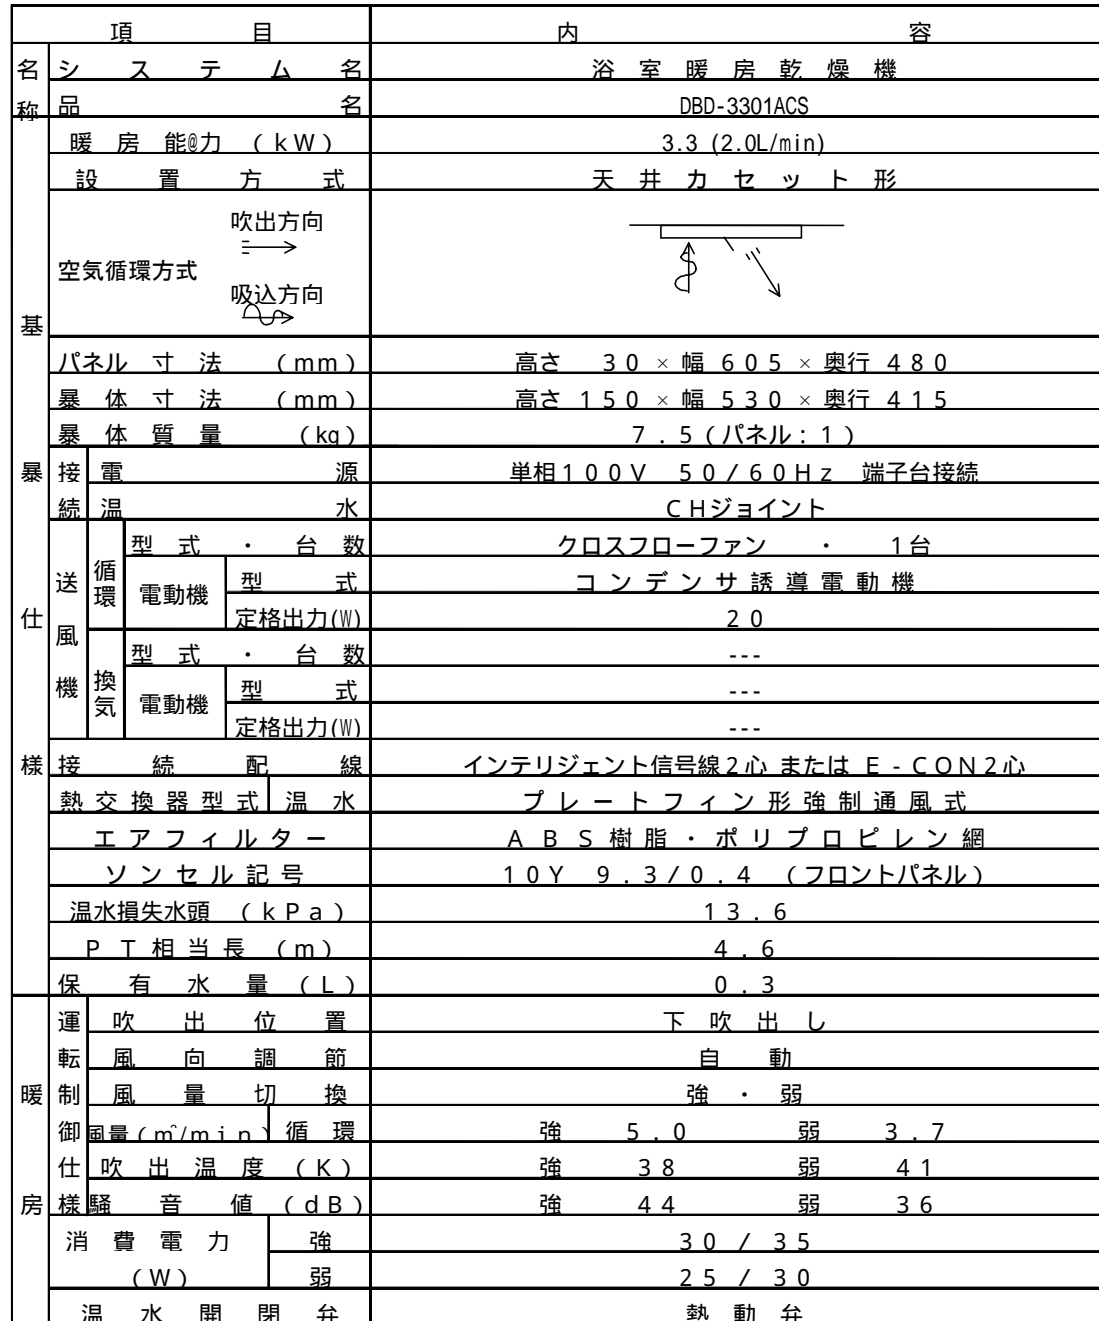 項目 内容
名称 システム名 浴室暖房乾燥機
品名 DBD-3301ACS
基暴仕様
暖房能@力 (kW) 3.3 (2.0L/min)
設置方式 天井カセット形
空気循環方式 吹出方向
吸込方向
パネル寸法 (mm) 高さ 30×幅605×奥行480
暴体寸法 (mm) 高さ150×幅530×奥行415
暴体質量 (kg) 7.5(パネル:1)
接続 電源 単相100V 50/60Hz 端子台接続
温水 CHジョイント
送風機 循環 型式・台数 クロスフローファン ・ 1台
電動機 型式 コンデンサ誘導電動機
定格出力(W) 20
換気 型式・台数 ---
電動機 型式 ---
定格出力(W) ---
接続配線 インテリジェント信号線2心 または E-CON2心
熱交換器型式 温水 プレートフィン形強制通風式
エアフィルター ABS樹脂・ポリプロピレン網
ソンセル記号 10Y 9.3/0.4 (フロントパネル)
温水損失水頭 (kPa) 13.6
PT相当長 (m) 4.6
保有水量 (L) 0.3
暖房
運転制御仕様 吹出位置 下吹出し
風向調節 自動
風量切換 強・弱
風量(m³/min) 循環 強 5.0 弱 3.7
吹出温度 (K) 強 38 弱 41
騒音値 (dB) 強 44 弱 36
消費電力 (W) 強 30/35
弱 25/30
温水開閉弁 熱動弁